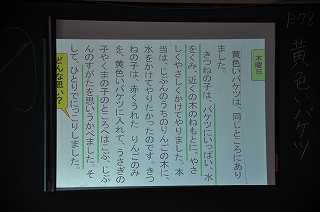 黄色いバケツ
木曜日
黄色いバケツは、同じところにあり
ました。
きつねの子は、バケツにいっぱい、水
をくみ、近くの木のねもとに、やさ
しくやさしくかけてやりました。本
当は、じぶんのうちのりんごの木に、
水をかけてやりたかったのです。きつ
ねの子は、赤くうれた りんごのみ
を、黄色いバケツに入れて、うさぎの
子やくまの子のところへはこぶ、じぶ
んのすがたを思いうかべました。そ
して、ひとりでにっこりしました。
どんな思い？